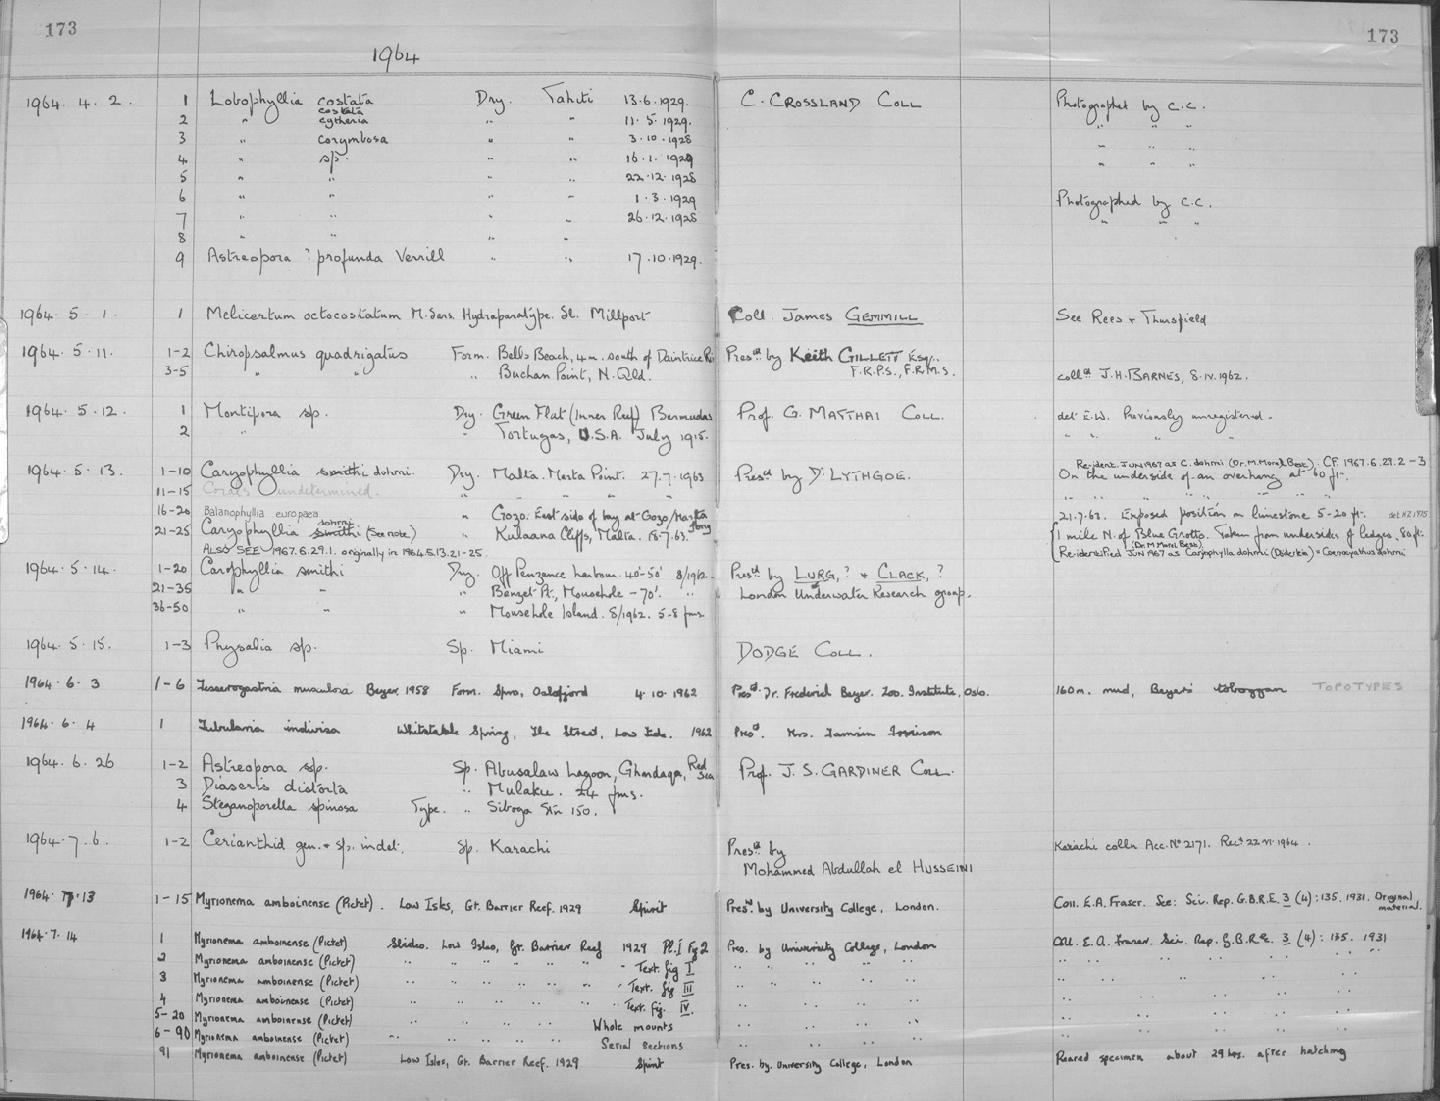 173
173
1964
1964. 4. 2. 1 Lobophyllia costata Dry. Tahiti 13.6.1929. C. CROSSLAND COLL Photographed by C.C.
costata
2 " cytheria " " 11.5.1929. " " "
3 " corymbosa " " 3.10.1928 " " "
4 " sp. " " 16.1.1929 " " "
5 " " " " 22.12.1928
6 " " " " 1.3.1929 Photographed by C.C.
7 " " " " 26.12.1928 " " "
8 " " " "
9 Astreopora ? profunda Verrill " " 17.10.1929.
1964. 5. 1. 1 Melicertum octocostatum M. Sars. Hydraparatype. Sl. Millport Coll. James GEMMILL See Rees + Thursfield
1964. 5. 11. 1-2 Chiropsalmus quadrigatus Form. Bells Beach, 4m. south of Daintree Ri Pres.d by Keith GILLETT Esq.,
3-5 " " " Buchan Point, N. Qld. F.R.P.S., F.R.M.S. coll.d J.H. BARNES, 8.IV.1962.
1964. 5. 12. 1 Montipora sp. Dry. Green Flat (Inner Reef) Bermudas Prof. G. MATTHAI COLL. det E.W. Previously unregistered.
2 " " Tortugas, U.S.A. July 1915. " " " "
Re-ident. JUN 1967 as C. dohrni (Dr. M. Morel Best). CF. 1967.6.29.2-3
1964. 5. 13. 1-10 Caryophyllia smithi dohrni. Dry. Malta. Mesta Point. 27.7.1963 Pres.d by D. LYTHGOE. On the underside of an overhang at 60 ft.
11-15 Corals undetermined. " " " " " " " " " " "
16-20 Balanophyllia europaea " Gozo. East side of bay at Gozo/Malta 21.7.63. Exposed position on limestone 5-20 ft. det HZ 1975
dohrni ferry
21-25 Caryophyllia smithi (See note) " Kulaana Cliffs, Malta. 18.7.63. 1 mile N. of Blue Grotto. Taken from undersides of ledges. 80 ft.
(Dr. M. Morel Best)
ALSO SEE 1967.6.29.1. originally in 1964.5.13.21-25. Re-identified JUN 1967 as Caryophyllia dohrni = Coenocyathus dohrni
1964. 5. 14. 1-20 Caryophyllia smithi Dry. Off Penzance harbour. 40'-50' 8/1962. Pres.d by LURG, ? + CLACK, ?
21-35 " " " Penzer Pt., Mousehole - 70'. " London Underwater Research group.
36-50 " " " Mousehole Island. 8/1962. 5-8 fms
1964. 5. 15. 1-3 Physalia sp. Sp. Miami DODGE COLL.
1964. 6. 3 1-6 Tesserogastria musculosa Beyer, 1958 Form. Spro, Oslofjord 4.10.1962 Pres.d Dr. Frederick Beyer. Zoo. Institute, Oslo. 160m. mud, Beyer's toboggan TOPOTYPES
1964. 6. 4 1 Tubularia indivisa Whitstable Spring, The Street, Low tide. 1962 Pres.d. Mrs. Tamsin
1964. 6. 26 1-2 Astreopora sp. Sp. Abusalaw Lagoon, Ghardaqa, Red Sea Prof. J. S. GARDINER COLL.
3 Diaseris distorta " Mulaku. 24 fms.
4 Steganoporella spinosa Type. " Siboga Stn 150.
1964. 7. 6. 1-2 Cerianthid gen. + sp. indet. Sp. Karachi Pres.d by Karachi colln Acc. No 2171. Rec.d 22.VI.1964.
Mohammed Abdullah el HUSSEINI
1964. 7. 13 1-15 Myrionema amboinense (Pictet). Low Isles, Gt. Barrier Reef. 1929 Spirit Pres.d by University College, London. Coll. E.A. Fraser. See: Sci. Rep. G.B.R.E. 3 (4): 135. 1931. Original material.
1964. 7. 14 1 Myrionema amboinense (Pictet) Slides. Low Isles, Gt. Barrier Reef 1929 Pl. I Fig 2 Pres. by University College, London Coll. E.A. Fraser. Sci. Rep. G.B.R.E. 3 (4): 135. 1931
2 Myrionema amboinense (Pictet) " " " " " " " Text. fig I " " " " " " " "
3 Myrionema amboinense (Pictet) " " " " " " " Text. fig III " " " " " " "
4 Myrionema amboinense (Pictet) " " " " " " Text. fig. IV. " " " " " " "
5-20 Myrionema amboinense (Pictet) " " " " Whole mounts " " " " " " "
6-90 Myrionema amboinense (Pictet) " " " " Serial sections " " " " " "
91 Myrionema amboinense (Pictet) Low Isles, Gt. Barrier Reef. 1929 Spirit Pres. by. University College, London Reared specimen about 29 hrs. after hatching